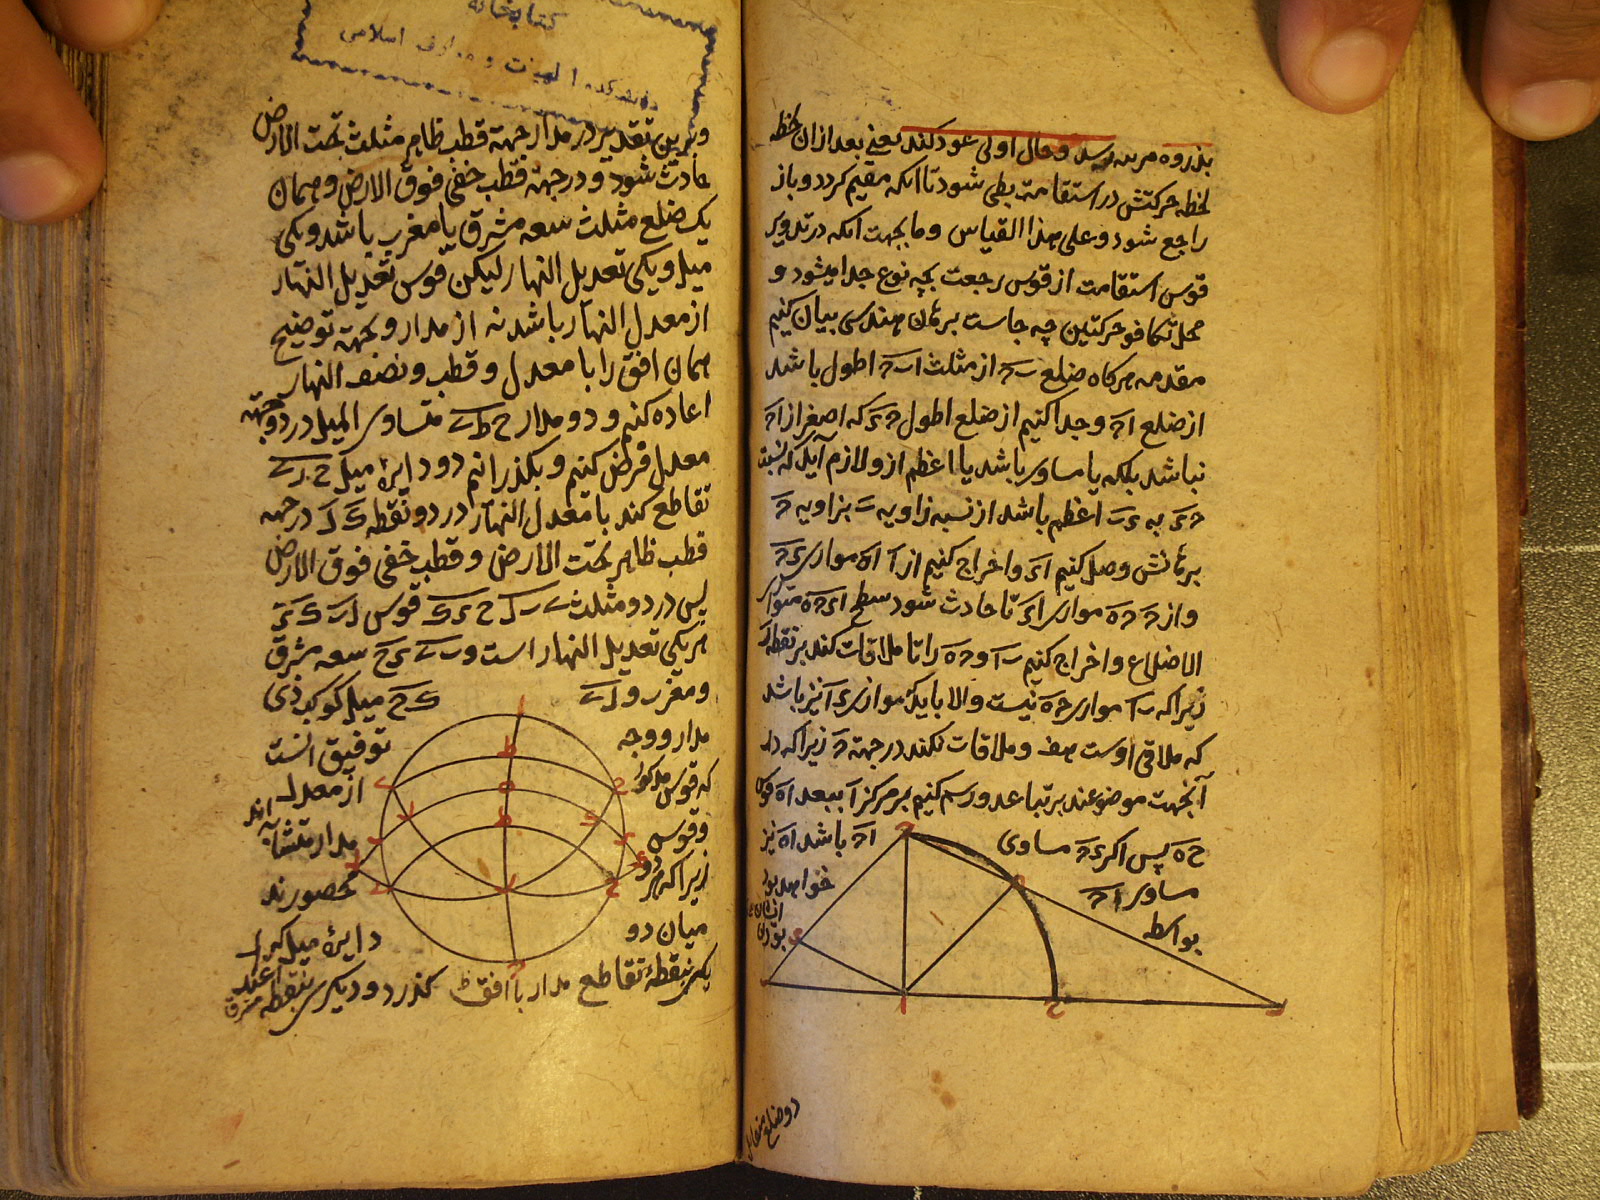 بذروه مرئیه رسد و حال اولی عود کند یعنی بعد از ان لحظه
لحظه حرکتش در استقامت بطی شود تا انکه مقیم کردد و باز
راجع شود و علی هذا القیاس و ما بجهت انکه در تدویر
قوس استقامت از قوس رجعت بچه نوع جدا میشود و
محل تکافو حرکتین چه جاست برهان هندسی بیان کنیم
مقدمه هرکاه ضلع ب ح از مثلث ا ب ح اطول باشد
از ضلع ا ح و جدا کنیم از ضلع اطول ح ی که اصغر از ا ح
نباشد بلکه یا مساوی باشد یا اعظم ازو لازم آید که نسبت
ح ی به ی ب اعظم باشد از نسبه زاویه ب بزاویه ح
برهانش وصل کنیم ا ی و اخراج کنیم از ا ا ه موازی ی ح
و از ح ح ه موازی ا ی تا حادث شود سطح ا ی ح ه متوازی
الاضلاع و اخراج کنیم ب ا و ح ه را تا ملاقات کند بر نقطه
زیرا که ب ا موازی ح ه نیست و الا باید که موازی ی ا نیز باشد
که ملاقی اوست هف و ملاقات نکند در جهت ح زیرا که در
آنجهت موضوعند بر تباعد و رسم کنیم بر مرکز ا ببعد ا ه قوس
ح ه پس اکر ی ح مساوی ا ح باشد ا ه نیز
مساوی ا ح خواهد بود
بواسطه بودن
دو ضلع متقابل
کتابخانه
دانشکده الهیات و معارف اسلامی
و برین تقدیر در مدار جهة قطب ظاهر مثلث تحت الارض
حادث شود و در جهة قطب خفی فوق الارض و همان
یک ضلع مثلث سعه مشرق یا مغرب باشد و یکی
میل و یکی تعدیل النهار لیکن قوس تعدیل النهار
از معدل النهار باشد نه از مدار و بجهة توضیح
همان افق را با معدل و قطب و نصف النهار
اعاده کنم و دو مدار ح ط ی متساوی المیل در دو جهة
معدل فرض کنم و بکذرانم دو دایرهٔ میل
تقاطع کند با معدل النهار در دو نقطه ک ل در جهة
قطب ظاهر تحت الارض و قطب خفی فوق الارض
پس در دو مثلث قوس
هر یکی تعدیل النهار است و سعه مشرق
و مغرب و میل کوکب ذی
مدار و وجه توفیق انست
که قوس مذکور از معدل
و قوس مدار متشابه اند
زیرا که هر دو محصورند
میان دو دایرهٔ میل که
یکی بنقطهٔ تقاطع مدار با افق کذرد و دیکری بنقطه مشرق